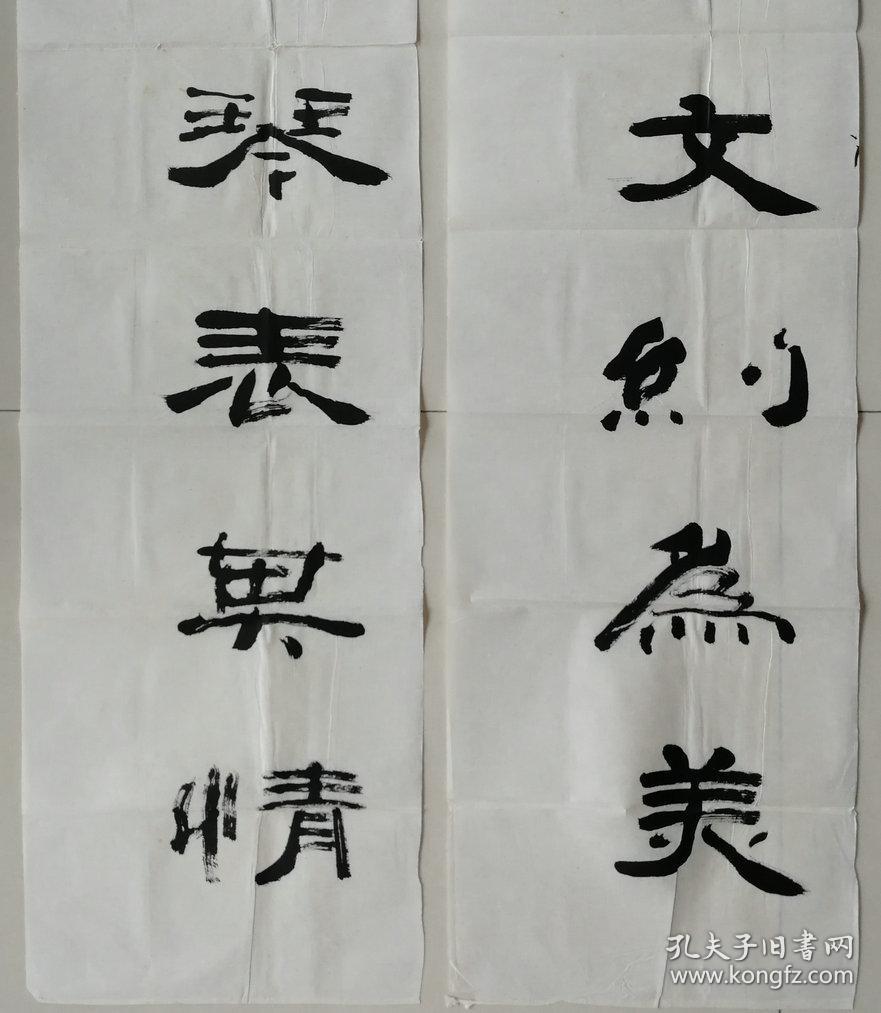 文約為美
琴表其情
孔夫子旧书网
www.kongfz.com